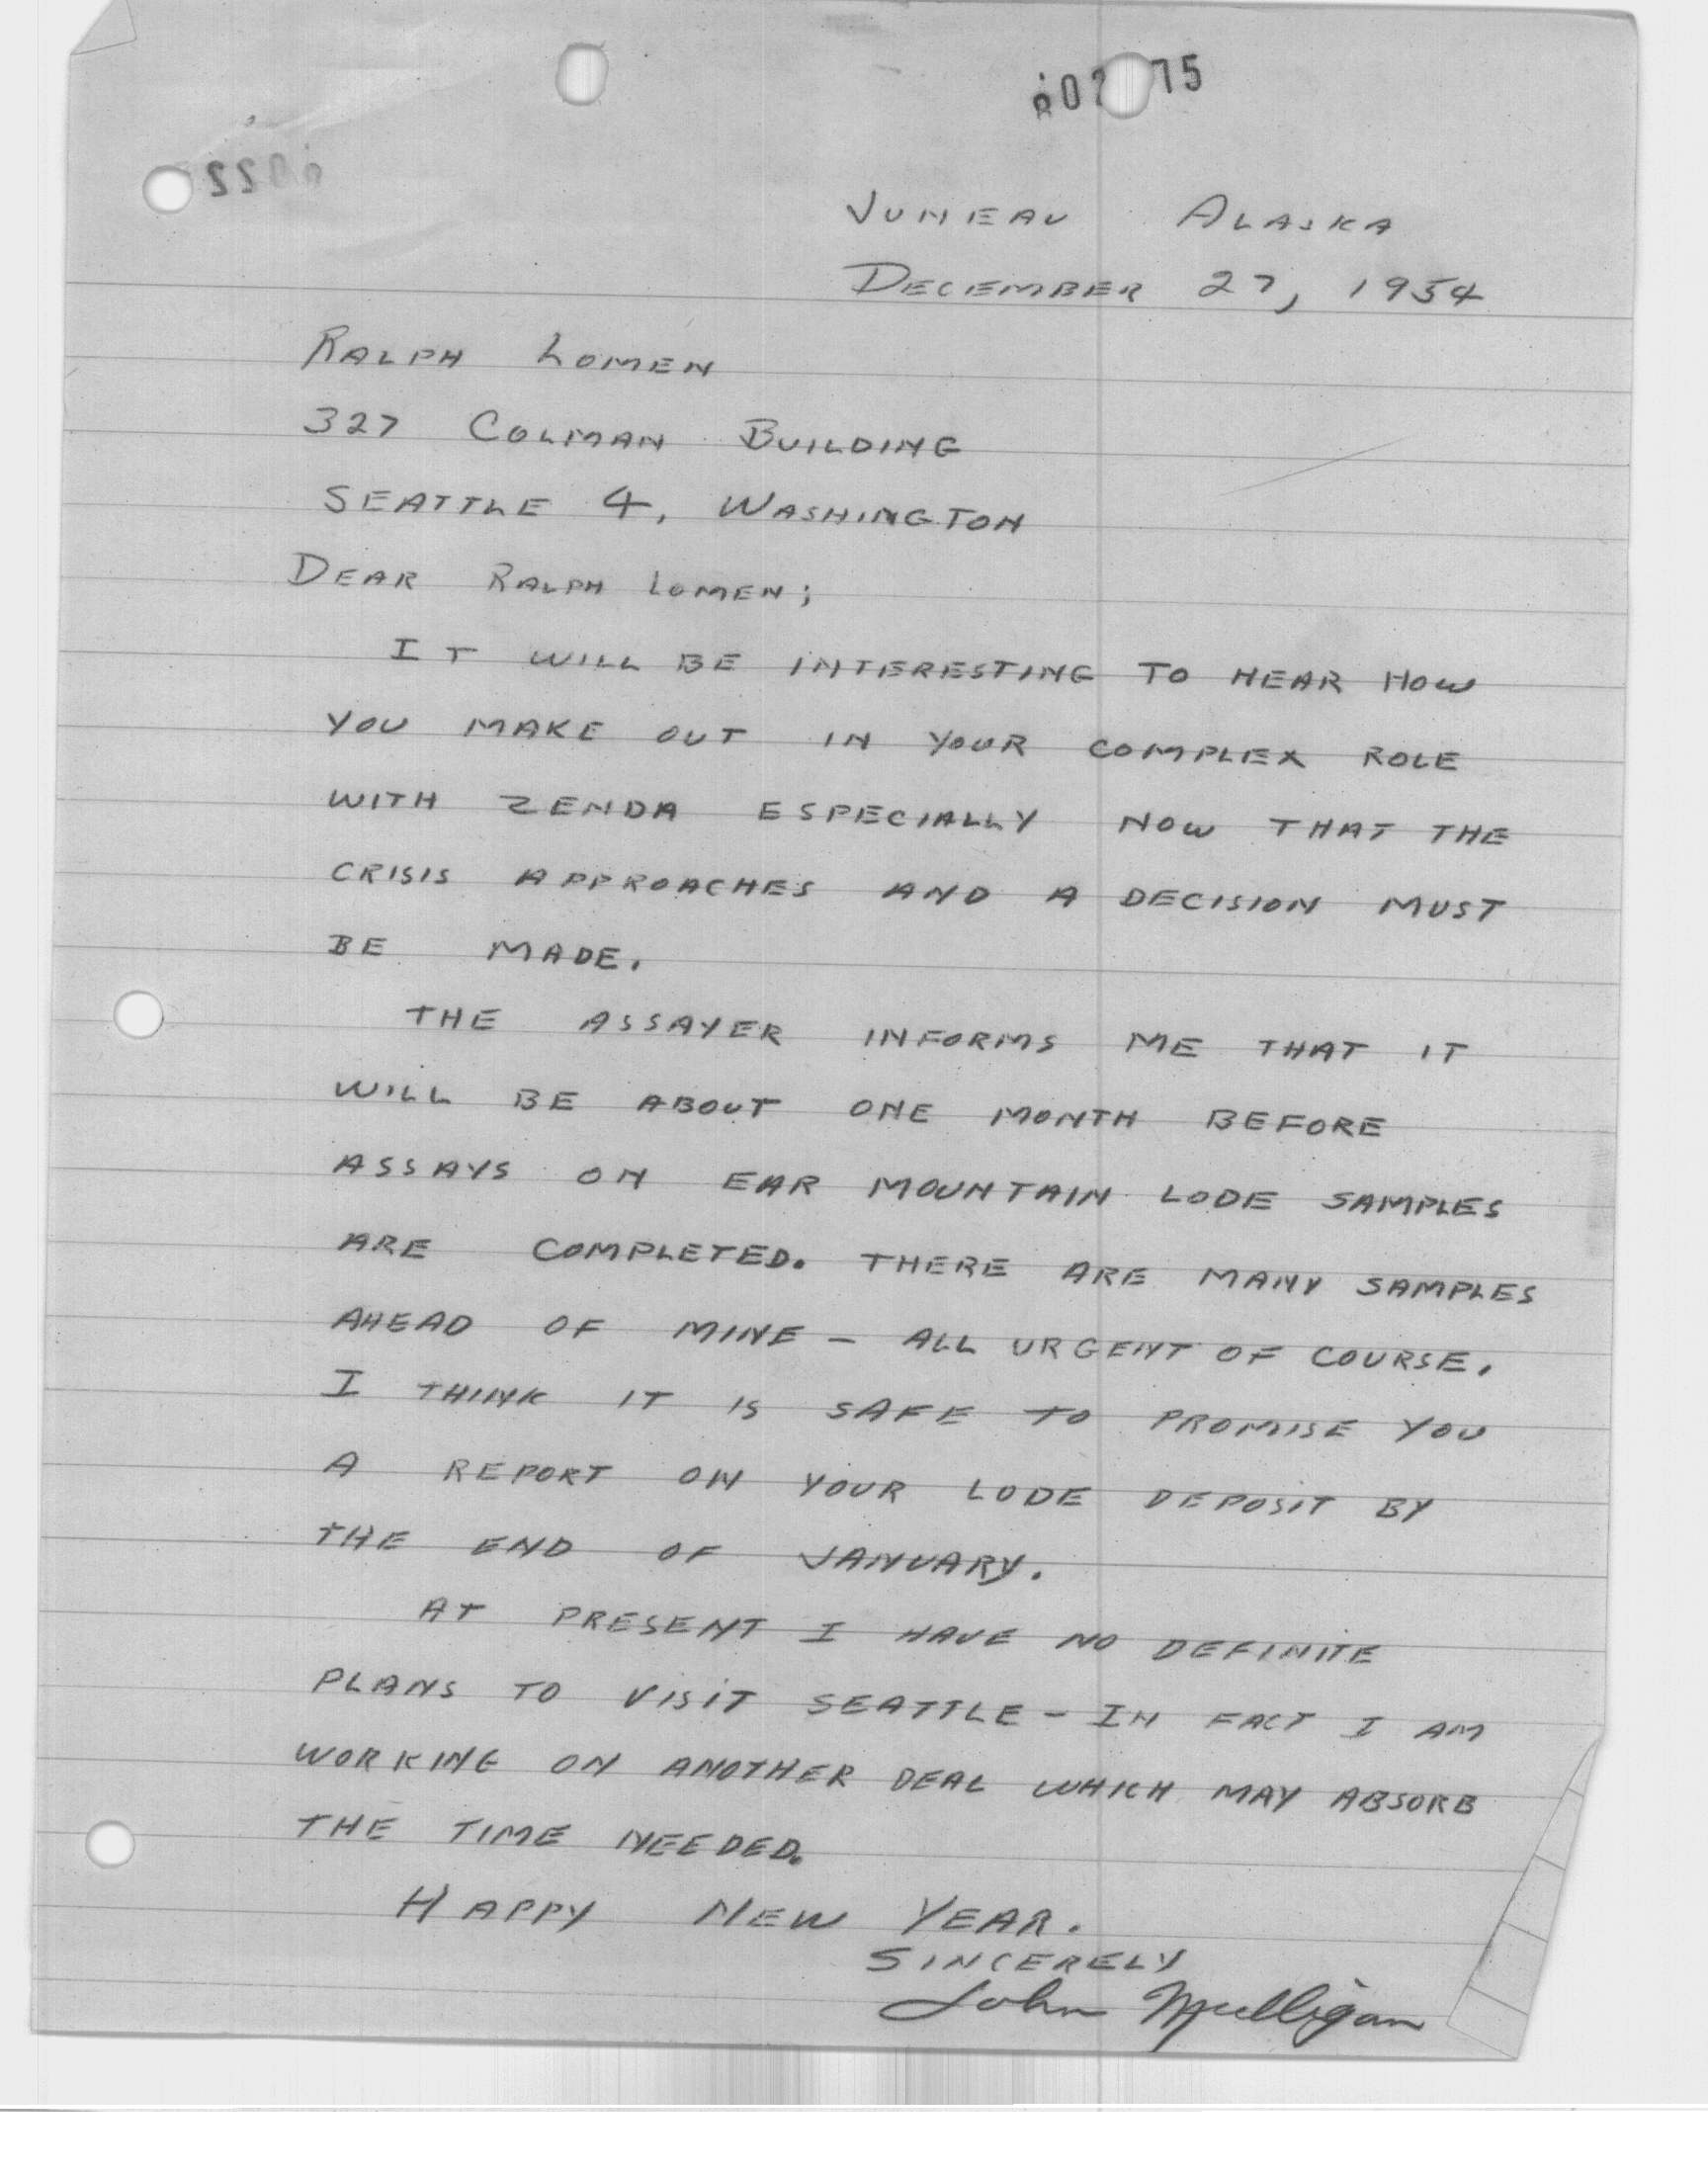 JUNEAU ALASKA
DECEMBER 27, 1954
RALPH LOMEN
327 COLMAN BUILDING
SEATTLE 4, WASHINGTON
DEAR RALPH LOMEN;
IT WILL BE INTERESTING TO HEAR HOW
YOU MAKE OUT IN YOUR COMPLEX ROLE
WITH ZENDA ESPECIALLY NOW THAT THE
CRISIS APPROACHES AND A DECISION MUST
BE MADE.
THE ASSAYER INFORMS ME THAT IT
WILL BE ABOUT ONE MONTH BEFORE
ASSAYS ON EAR MOUNTAIN LODE SAMPLES
ARE COMPLETED. THERE ARE MANY SAMPLES
AHEAD OF MINE - ALL URGENT OF COURSE.
I THINK IT IS SAFE TO PROMISE YOU
A REPORT ON YOUR LODE DEPOSIT BY
THE END OF JANUARY.
AT PRESENT I HAVE NO DEFINITE
PLANS TO VISIT SEATTLE - IN FACT I AM
WORKING ON ANOTHER DEAL WHICH MAY ABSORB
THE TIME NEEDED.
HAPPY NEW YEAR.
SINCERELY
John Mulligan